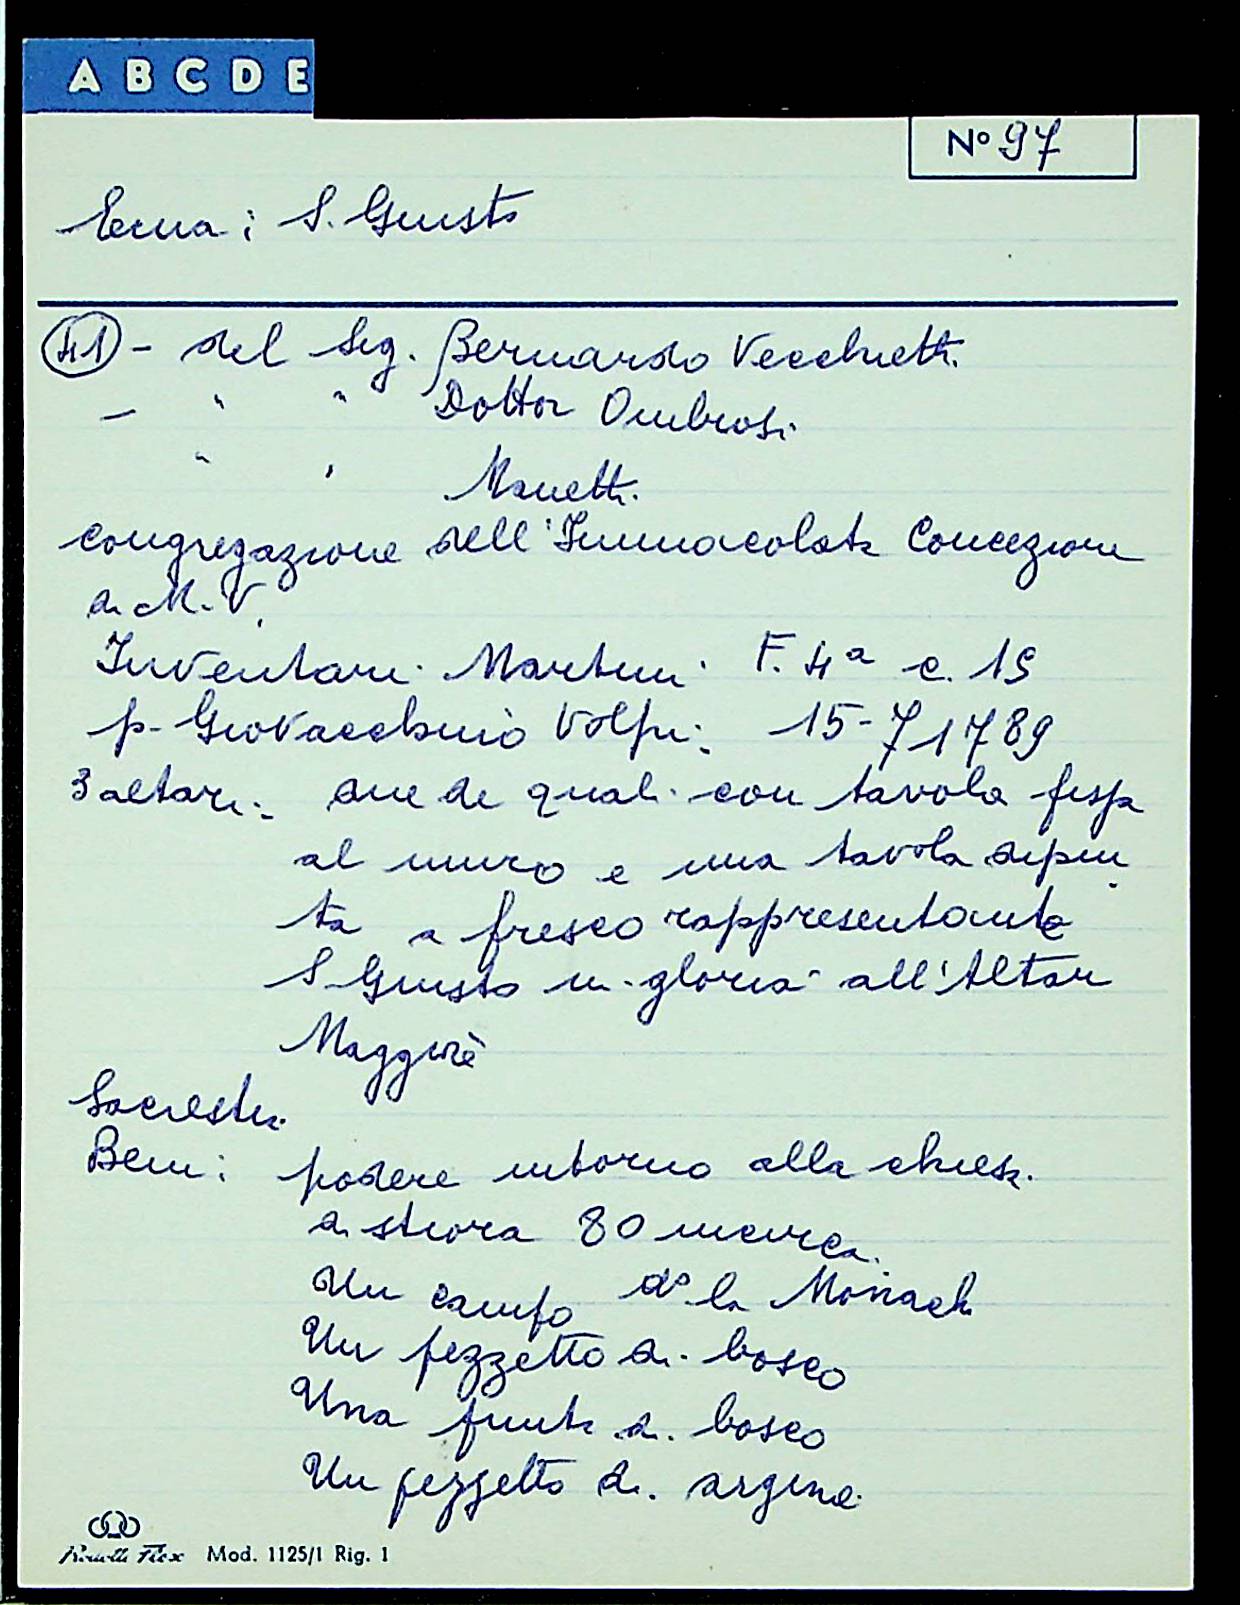 A B C D E
Nº 97
Ecna: S. Giusto
41 - del Sig. Bernardo Vecchietti
- " " Dottor Ombrosi
" " Manetti
congregazione dell'Immacolata Concezione
di M.V.
Inventari Martini F. 4ª c. 19
p. Giovacchino Volpi: 15-7 1789
3 altari: due de quali con tavola fissa
al muro e una tavola dipin
ta a fresco rappresentante
S Giusto in gloria all'Altar
Maggiore
Sacrestia
Beni: podere intorno alla chiesa
di stiora 80 incirca
Un campo dº la Monach
Un pezzetto di bosco
Una punta di bosco
Un pezzetto di argine
Mod. 1125/1 Rig. 1